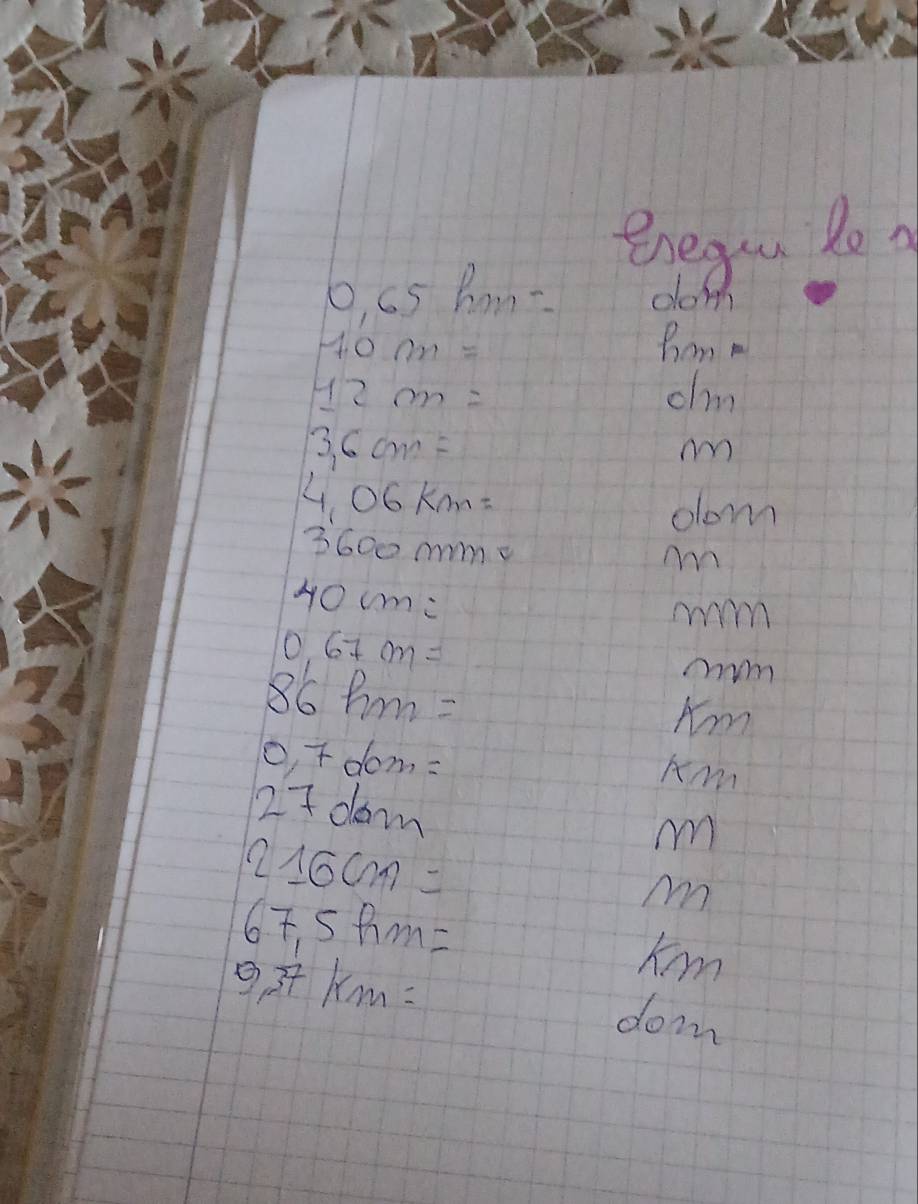 Esegui le
0,65 hm = dam
10 m = hm
12 m = dm
3,6 cm = m
4,06 Km = dam
3600 mm = m
40 cm = mm
0,67 m = mm
86 hm = Km
0,7 dam = Km
27 dam m
216 cm = m
67,5 hm = Km
9,37 Km = dam